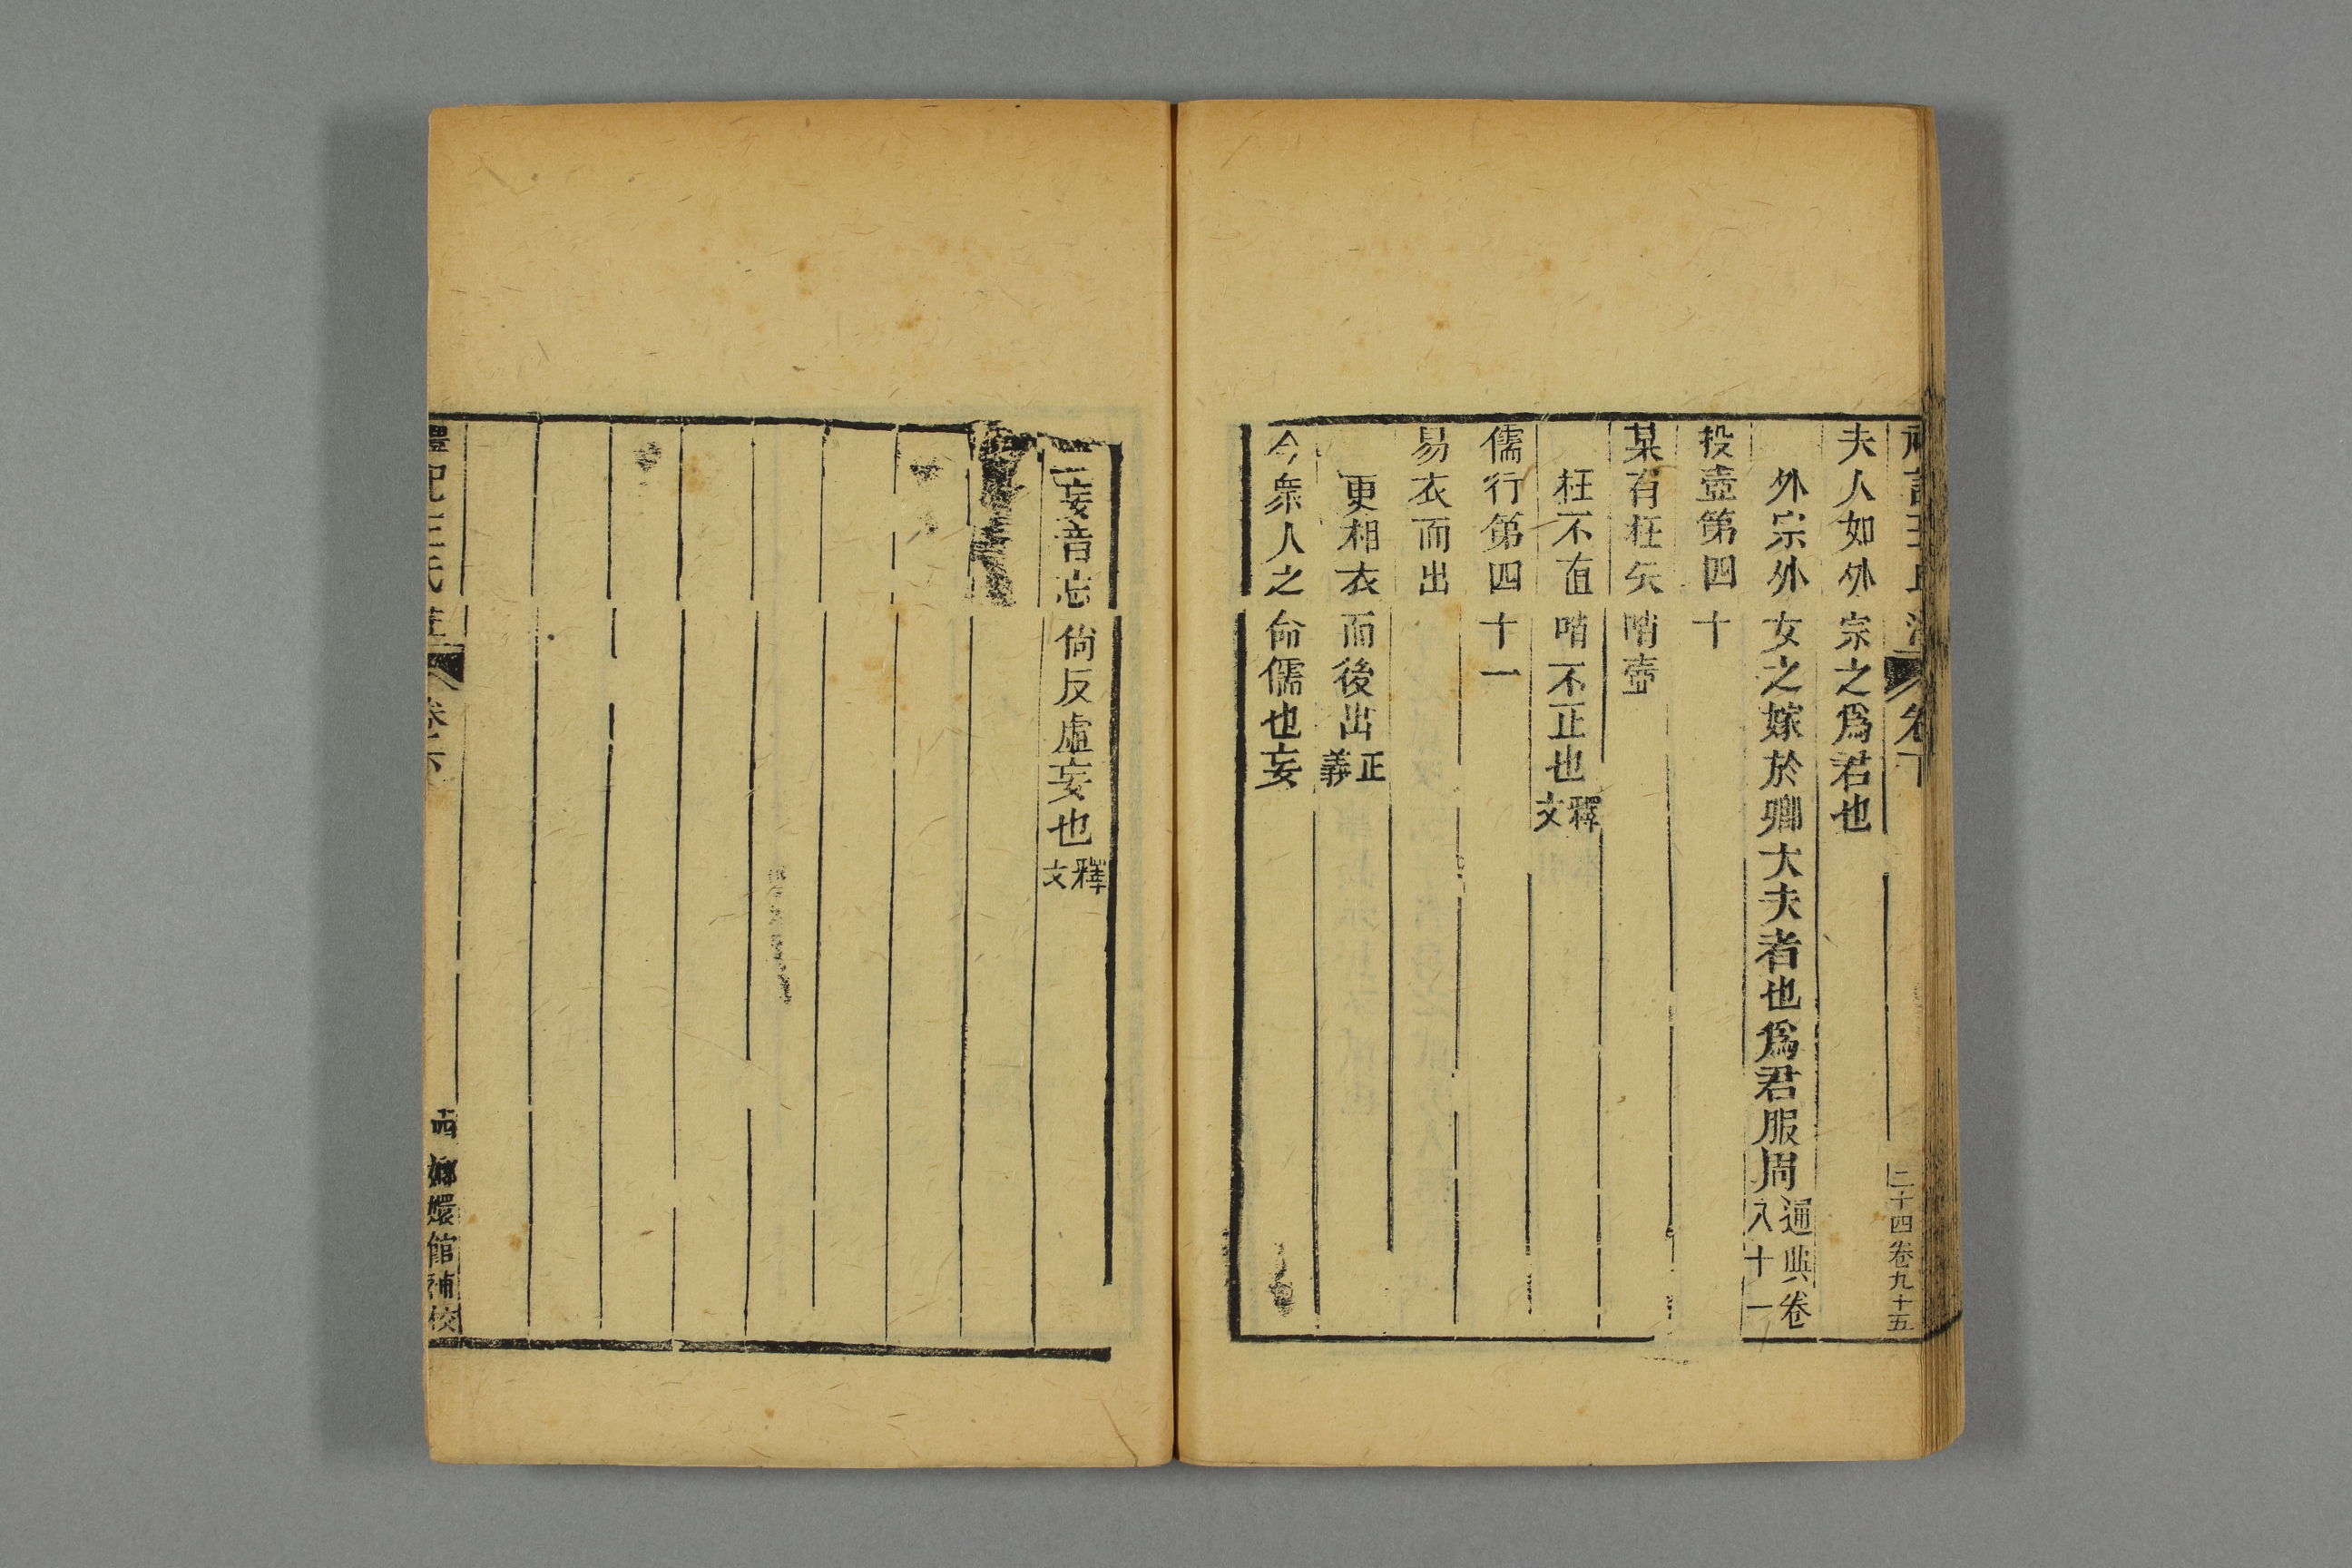 禮記王氏注 卷下 二十四卷九十五
夫人如外宗之爲君也
外宗外女之嫁於卿大夫者也爲君服周通典卷八十一
投壺第四十
某有枉矢哨壺
枉不直哨不正也釋文
儒行第四十一
易衣而出
更相衣而後出正義
今衆人之命儒也妄
妄音忘尙反虛妄也釋文
禮記王氏注 卷下 嫏嬛館補校